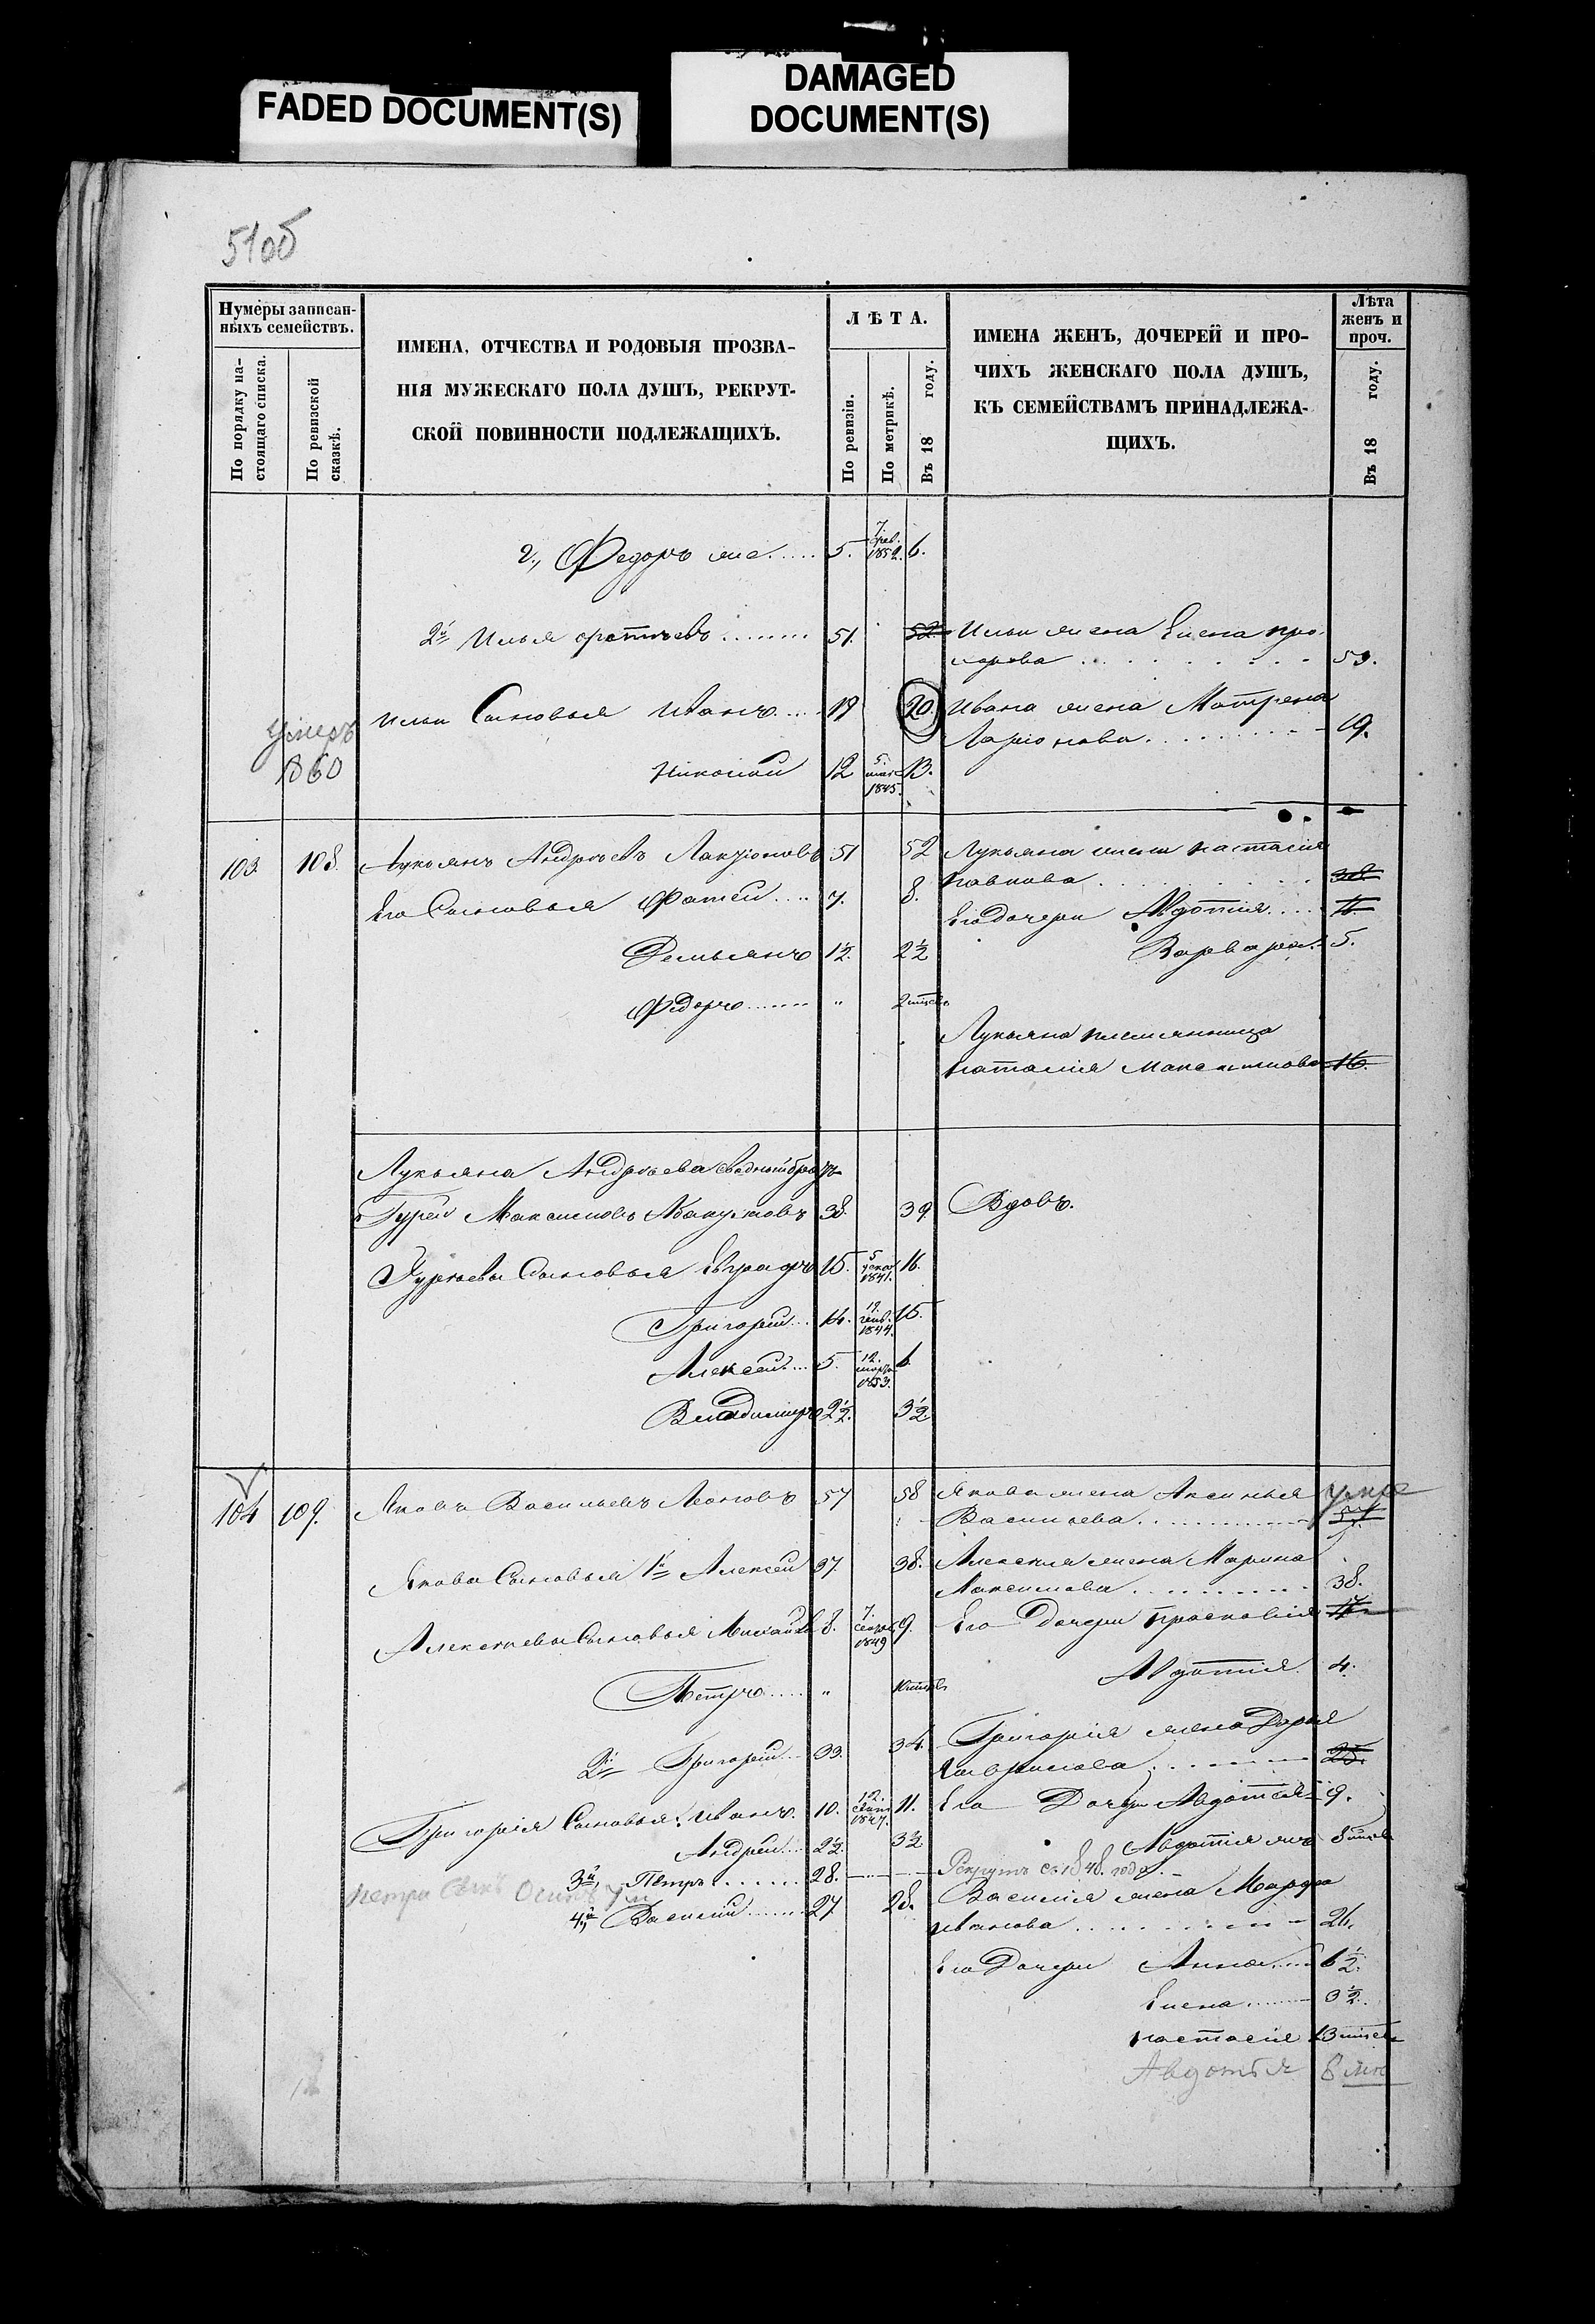 FADED DOCUMENT(S)
DAMAGED
DOCUMENT(S)
51об
Нумеры записан-
ныхъ семействъ.
По порядку на-
стоящаго списка.
По ревизской
сказкѣ.
ИМЕНА, ОТЧЕСТВА И РОДОВЫЯ ПРОЗВА-
НІЯ МУЖЕСКАГО ПОЛА ДУШЪ, РЕКРУТ-
СКОЙ ПОВИННОСТИ ПОДЛЕЖАЩИХЪ.
ЛѢТА.
По ревизіи.
По метрикѣ.
Въ 18 году.
ИМЕНА ЖЕНЪ, ДОЧЕРЕЙ И ПРО-
ЧИХЪ ЖЕНСКАГО ПОЛА ДУШЪ,
КЪ СЕМЕЙСТВАМЪ ПРИНАДЛЕЖА-
ЩИХЪ.
Лѣта
женъ и
проч.
Въ 18 году.
2., Федоръ 5. 7. фев. 1852. 6.
2й Илья 51. 52 Ильи жена Елена про-
хорова 53.
Ильи Сыновья Иванъ 19 20. Ивана жена Матрена
Ларіонова 19.
умеръ
1860
Николай 12 5. мая 1845. 13.
103. 108. Лукьянъ Андреевъ 51 52 Лукьяна жена настасія
павлова 38.
Его Сыновья Фатей 7. 8. Его дочери Авдотія 11.
Демьянъ 1½. 2½ Варвара 5.
Федоръ " 2 мѣс.
Лукьяна племянница
наталія Максимова 16.
Лукьяна Андреева сводный братъ
Гурей Максимовъ 38. 39 Вдовъ.
Гурьевы Сыновья Евграфъ 15. 5 1841. 16.
Григорій 14. 19. генв. 1844. 15.
Алексей 5. 12. марта 1853. 6
Владимиръ 2½. 3½
104 109. Яковъ Васильевъ 57 58 Якова жена Аксинья умер
Васильева 57
Якова Сыновья 1й Алексей 37. 38. Алексея жена Марина
Максимова 38.
Алексеевы Сыновья Михайла 8. 7. 1849 9. Его Дочери Прасковія
Петръ " Авдотія 4.
2й Григорей 33. 34. Григорія жена Дарья
Гаврилова 25.
Григорія Сыновья: Иванъ. 10. 12. 1847. 11. Его Дочери Авдотья 9.
Андрей 2½. 3½ Авдотія 8 мѣс.
3й, Петръ 28. Рекрутъ съ 1848. года.
Петра Сынъ Осипъ
4й Василій 27. 28. Василія жена Марфа
иванова 26.
Его Дочери Анна 6½.
Елена 3½.
настасія 3 мѣс.
Авдотья 8 мѣс